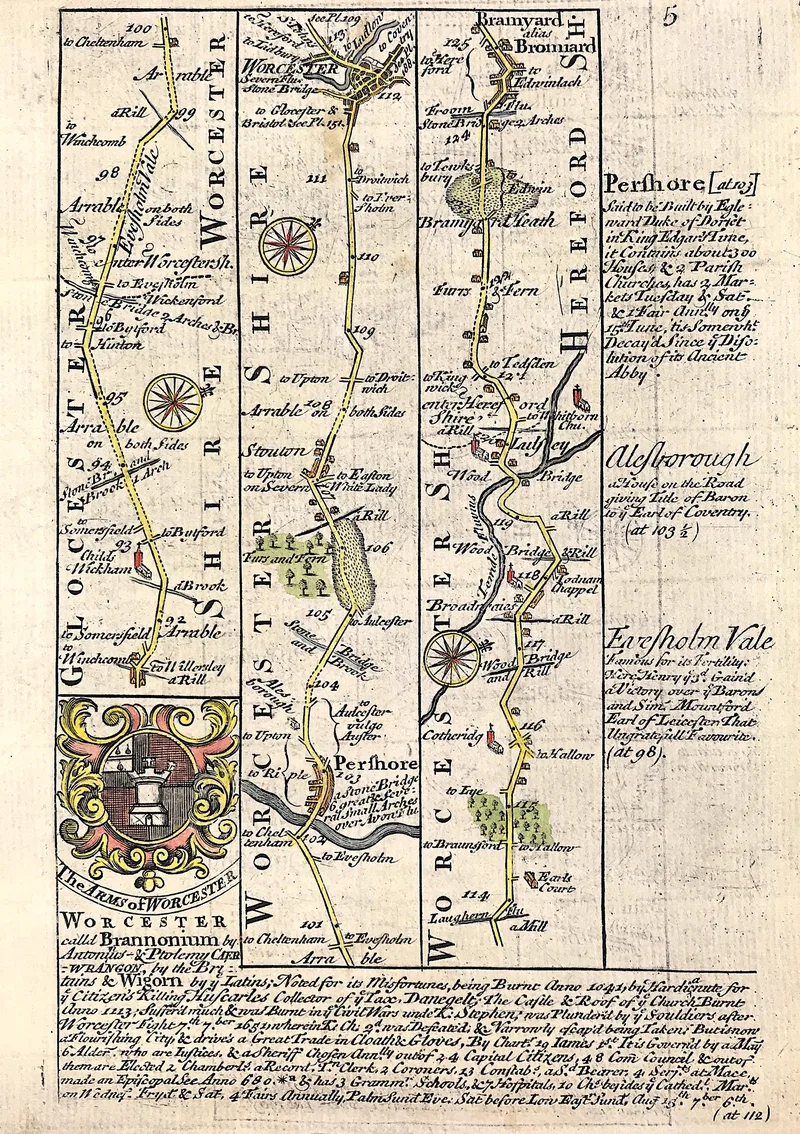 5
100
to Cheltenham
Arrable
a Rill
99
to
Winchcomb
98
Evesholm Vale
Arrable on both
Sides
97
enter Worcestersh.
to Evesholm
Wickenford
Bridge 2 Arches & Br.
96
to Byford
to
Hinton
95
Arrable
on both Sides
94
Stone Br. and
Brook 1 Arch
to
Somersfield
to Byford
93
Childs
Wickham
a Brook
92
to Somersfield
Arrable
to
Winchcomb
to Willersley
a Rill
GLOCESTER
SHIRE
WORCESTER
See Pl. 109
to Ludlow
to Coventry
113
to Hereford
to Lidbury
WORCESTER
Severn Flu.
Stone Bridge
112
to Glocester &
Bristol. See Pl. 151.
111
to
Droitwich
to Frer-
sholm
110
109
to Upton
to Droit-
wich
108
Arrable on both Sides
Stouton
to Upton
on Severn
to Easton
White Lady
a Rill
Furs and Fern
106
105
to Aulcester
Stone Bridge
and Brook
Ales
borough
104
to
Aulcester
vulgo
Auster
to Upton
Pershore
to Riple
103
a Stone Bridge
6 great & Seve-
ral Small Arches
over Avon Flu.
to Chel
tenham
102
to Evesholm
101
to Cheltenham
to Evesholm
Arrable
WORCESTER SHIRE
Bramyard
alias
Bronnard
125
to Here
ford
to
Edwinlach
Froom Flu.
Stone Bridge 2 Arches
124
to Tewks
bury
to
Edwin
Bramyard Heath
Furrs & Fern
to Tedsden
to King
wick
121
enter Hereford
Shire
to Whitborn
Chu.
a Rill
Lulsey
Wood Bridge
a Rill
119
Wood Bridge & Rill
118
Todnam
Chappel
Broadwaies
a Rill
117
Wood Bridge
and Rill
116
Cotheridg
to Hallow
to Lye
115
to Braunsford
to Hallow
Earls
Court
114
Laughern Flu
a Mill
WORCESTER SH
HEREFORD SH
Pershore [at 103]
Said to be Built by Egle-
ward Duke of Dorset
in King Edgar's Time,
it Contains about 300
Houses, & 2 Parish
Churches, has 2 Mar-
kets Tuesday & Sat.
& 1 Fair Annlly on ye
15th June, tis Somewht
Decay'd Since ye Disso-
lution of its Ancient
Abby.
Alesborough
a House on the Road
giving Title of Baron
to ye Earl of Coventry.
(at 103 ½)
Evesholm Vale
Famous for its Fertility:
Here Henry ye 3d Gain'd
a Victory over ye Barons
and Sim. Mountford
Earl of Leicester That
Ungratefull Favourite.
(at 98).
The ARMS of WORCESTER
WORCESTER
calld Brannonium by
Antonius- & Ptolemy CAER
=WRANGON, by the Bri-
tains & Wigorn by ye Latins; Noted for its Misfortunes, being Burnt Anno 1041, by Hardicnute for
ye Citizens Killing Huscarles Collector of ye Tax, Danegelt; The Castle & Roof of ye Church Burnt
Anno 1113; Suffer'd much & was Burnt in ye Civil Wars undr K. Stephen; was Plunder'd by ye Souldiers after
Worcester Fight 7th 7ber 1651, wherein K. Ch. 2d was Defeated; & Narrowly escap'd being Taken: But is now
a Flourishing City & drives a Great Trade in Cloath & Gloves, By Chartr 19 Iames 1st It is Govern'd by a May
6 Alder. who are Iustices, & a Sheriff Chosen Annlly out of 24 Capital Citizens, 48 Com Council & out of
them are Elected 2 Chamberls a Record. Tn Clerk, 2 Coroners, 13 Constabs, a Sd Bearer, 4 Serjts at Mace,
made an Episcopal See Anno 680. & has 3 Gramm. Schools, & 7 Hospitals, 10 Chs besides ye Cathedl. Marts
on Wednes. Fryd. & Sat, 4 Fairs Annually, Palm Sund Eve: Sat before Low East. Sund, Aug 15th 7ber 6th
(at 112)